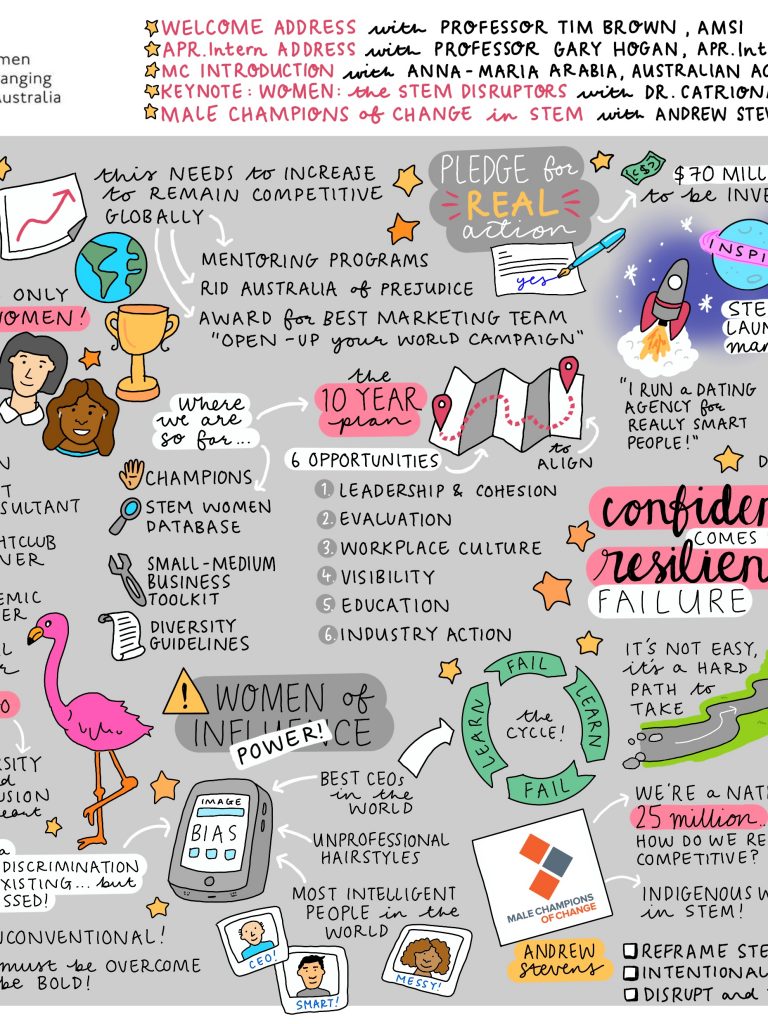 WELCOME ADDRESS with PROFESSOR TIM BROWN, AMSI
APR.Intern ADDRESS with PROFESSOR GARY HOGAN, APR.Int
MC INTRODUCTION with ANNA-MARIA ARABIA, AUSTRALIAN AC
KEYNOTE: WOMEN: the STEM DISRUPTORS with DR. CATRION
MALE CHAMPIONS of CHANGE in STEM with ANDREW STEV
men
anging
Australia
this NEEDS to INCREASE
to REMAIN COMPETITIVE
GLOBALLY
MENTORING PROGRAMS
RID AUSTRALIA of PREJUDICE
AWARD for BEST MARKETING TEAM
"OPEN-UP your WORLD CAMPAIGN"
PLEDGE for
REAL
action
yes
$70 MILL
to be INVE
INSPI
STE
LAUN
man
"I RUN a DATING
AGENCY for
REALLY SMART
PEOPLE!"
ONLY
WOMEN!
Where
we are
so far...
CHAMPIONS
STEM WOMEN
DATABASE
SMALL-MEDIUM
BUSINESS
TOOLKIT
DIVERSITY
GUIDELINES
the
10 YEAR
plan
to
ALIGN
6 OPPORTUNITIES
1. LEADERSHIP & COHESION
2. EVALUATION
3. WORKPLACE CULTURE
4. VISIBILITY
5. EDUCATION
6. INDUSTRY ACTION
D
confiden
COMES
resilien
FAILURE
IT'S NOT EASY,
it's a HARD
PATH to
TAKE
N
T
SULTANT
HTCLUB
NER
EMIC
ER
L
r
O
RSITY
d
USION
eant
a
DISCRIMINATION
XISTING... but
SSED!
NCONVENTIONAL!
must be OVERCOME
be BOLD!
WOMEN of
INFLUENCE
POWER!
IMAGE
BIAS
BEST CEOs
in the
WORLD
UNPROFESSIONAL
HAIRSTYLES
MOST INTELLIGENT
PEOPLE in the
WORLD
CEO!
SMART!
MESSY!
FAIL
LEARN
FAIL
LEARN
the
CYCLE!
MALE CHAMPIONS
OF CHANGE
ANDREW
Stevens
WE'RE a NAT
25 million...
HOW DO WE RE
COMPETITIVE?
INDIGENOUS W
in STEM!
REFRAME STE
INTENTIONAL
DISRUPT and